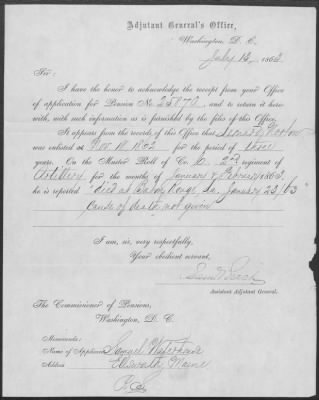 Adjutant General's Office,
Washington, D. C.
July 13, 1863.
Sir:
I have the honor to acknowledge the receipt from your Office
of application for Pension No. 25870, and to return it here-
with, with such information as is furnished by the files of this Office.
It appears from the records of this Office that
was enlisted at Nov. 10, 1862 for the period of three
years. On the Muster Roll of Co. C 2nd regiment of
Artillery, for the months of January & February 1863,
he is reported "died at Baton Rouge, La. January 23, /63"
Cause of death, not given
I am, sir, very respectfully,
Your obedient servant,
Assistant Adjutant General.
The Commissioner of Pensions,
Washington, D. C.
Memoranda:
Name of Applicant, Samuel
Address Ellsworth, Maine